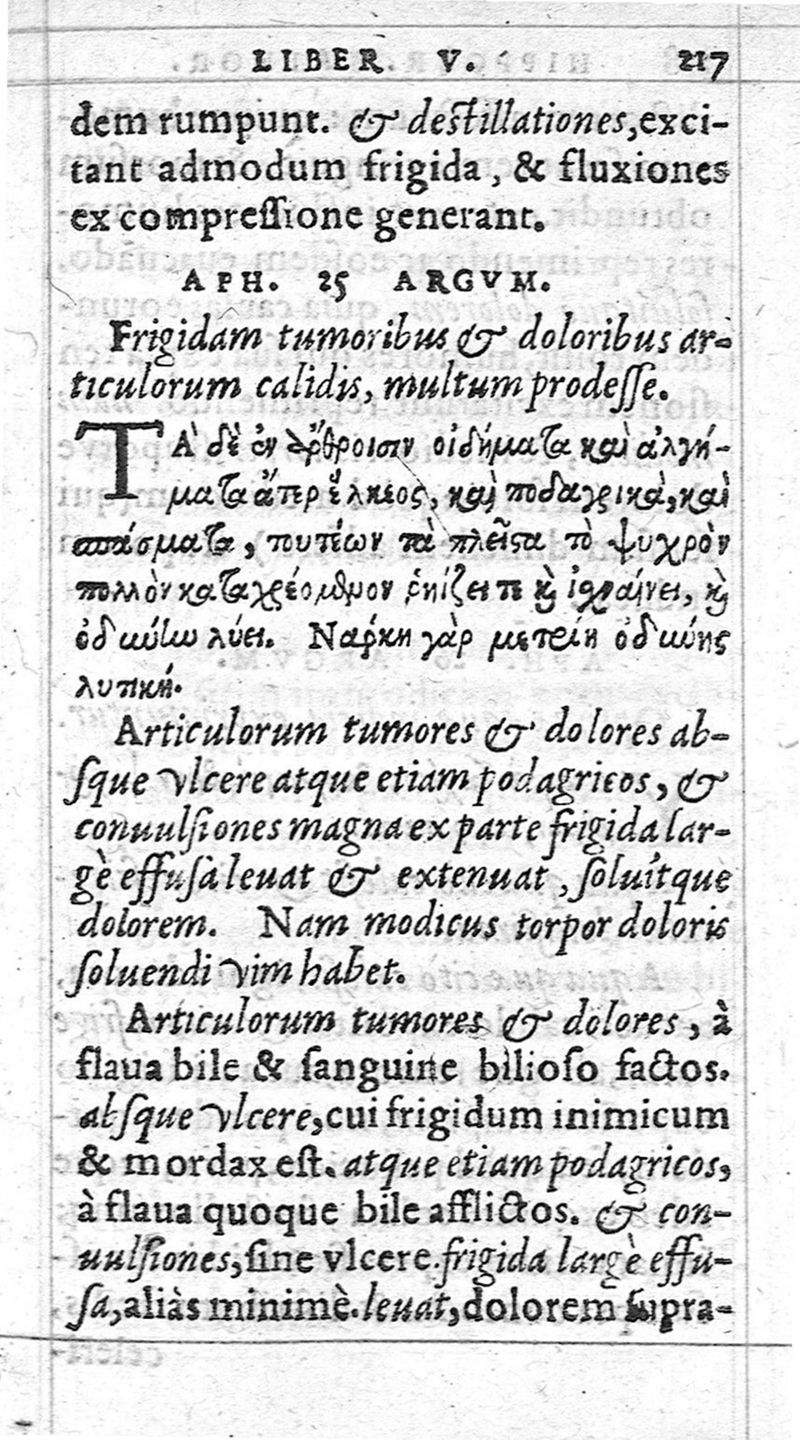 LIBER V. 217
dem rumpunt. & destillationes, exci-
tant admodum frigida, & fluxiones
ex compreſſione generant.
APH. 25 ARGVM.
Frigidam tumoribus & doloribus ar-
ticulorum calidis, multum prodeſſe.
ΤᾺ δὲ ἐν ἄρθροισιν οἰδήματα καὶ ἀλγή-
ματα ἄτερ ἕλκεος, καὶ ποδαγρικὰ, καὶ
σπάσματα, τουτέων τὰ πλεῖστα τὸ ψυχρὸν
πολλὸν καταχεόμενον ῥηίζει τε καὶ ἰσχναίνει, καὶ
ὀδύνην λύει. Νάρκη γὰρ μετρίη ὀδύνης
λυτική.
Articulorum tumores & dolores ab-
ſque vlcere atque etiam podagricos, &
conuulſiones magna ex parte frigida lar-
gè effuſa leuat & extenuat, ſoluítque
dolorem. Nam modicus torpor doloris
ſoluendi vim habet.
Articulorum tumores & dolores, à
flaua bile & ſanguine bilioſo factos.
abſque vlcere, cui frigidum inimicum
& mordax eſt. atque etiam podagricos,
à flaua quoque bile afflictos. & con-
uulſiones, ſine vlcere. frigida largè effu-
ſa, aliàs minimè. leuat, dolorem ſupra-